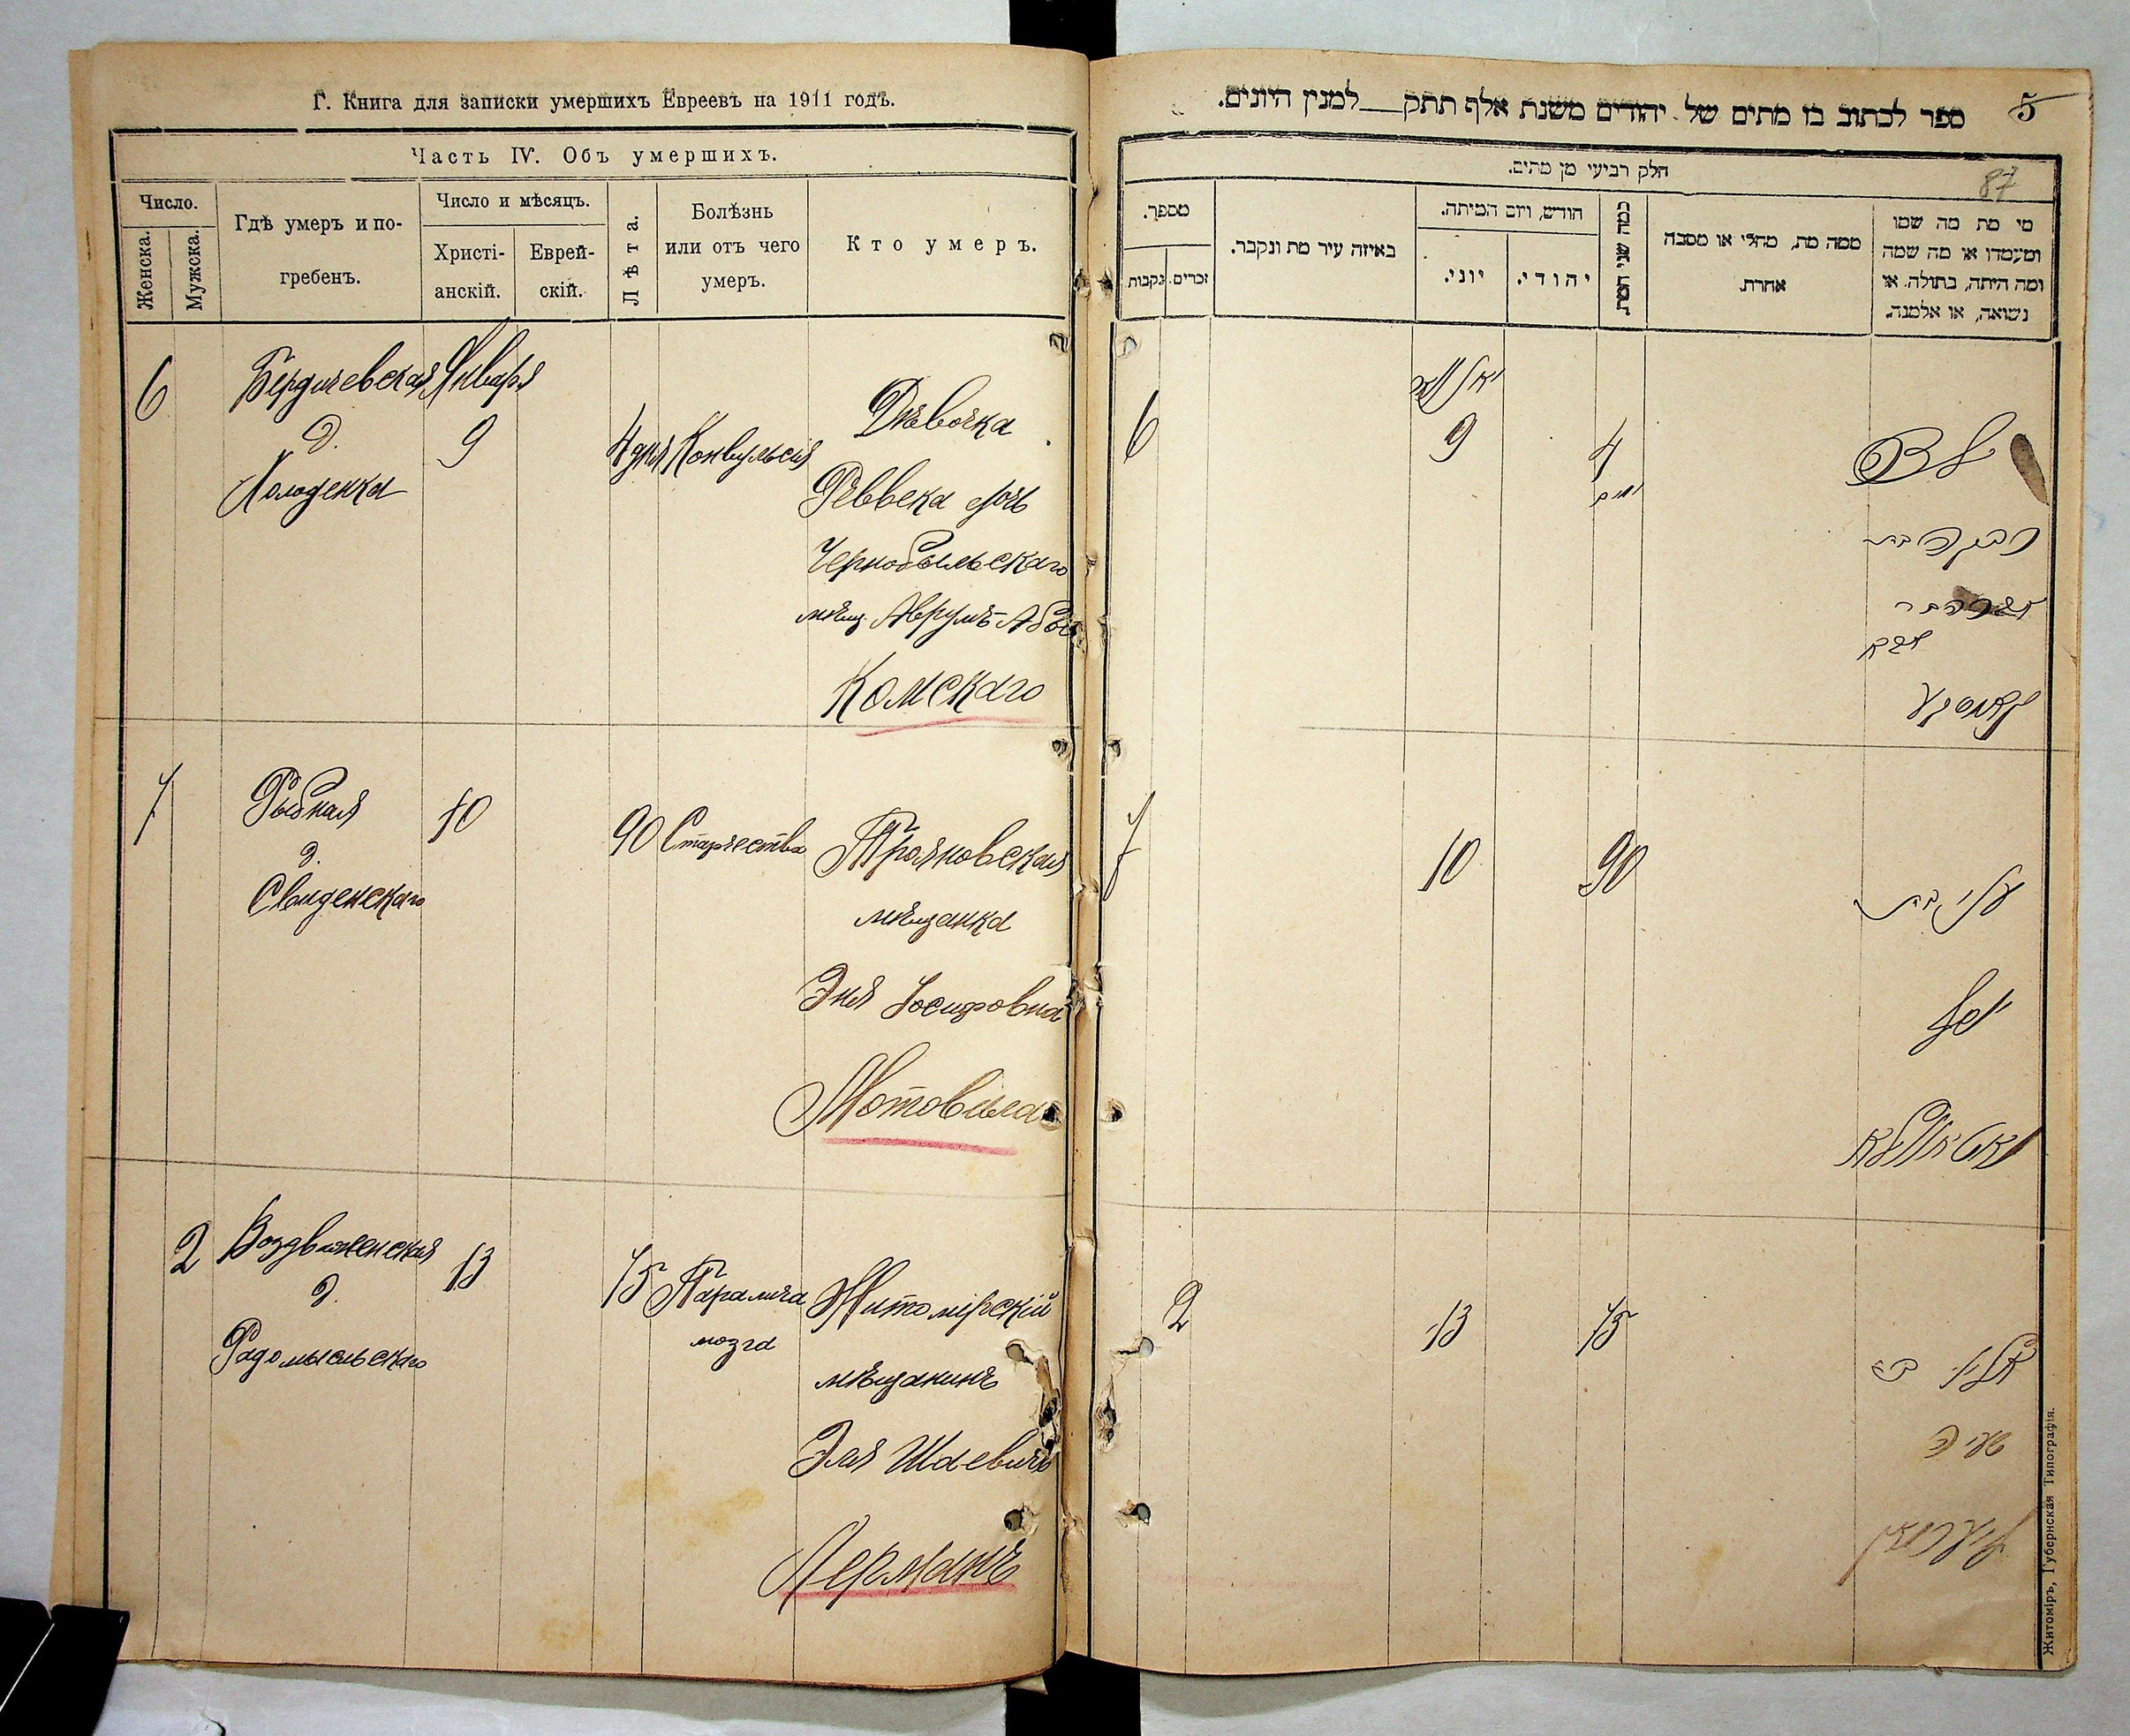 Г. Книга для записки умершихъ Евреевъ на 1911 годъ.
Часть IV. Объ умершихъ.
Число.
Женска.
Мужска.
Гдѣ умеръ и по-
гребенъ.
Число и мѣсяцъ.
Христі-
анскій.
Еврей-
скій.
Лѣта.
Болѣзнь
или отъ чего
умеръ.
Кто умеръ.
6
Бердичевская
д.
Холоденка
Января
9
4 дня
Конвульсія
Дѣвочка
Реввека дочь
Чернобыльскаго
мѣщ. Аврумъ-Абы
Комскаго
7
Рыбная
д.
Свиденскаго
10
90
Старчества
Трояновская
мѣщанка
Эня Іосифовна
Мотовила
2
Воздвиженская
д.
Радомысльскаго
13
75
Паралича
мозга
Житомірскій
мѣщанинъ
Эля Шаевичъ
Лерманъ
ספר לכתוב בו מתים של יהודים משנת אלף תתק—למנין היונים.
5
87
חלק רביעי מן מתים.
מספר.
נקבות
זכרים
באיזה עיר מת ונקבר.
חודש, ויום המיתה.
יוני.
יהודי.
כמה שני
ממה מת, מחלי או מסבה
אחרת.
מי מת מה שמו
ומעמדו או מה שמה
ומה היתה, בתולה. או
נשואה, או אלמנה.
6
יאנואר
9
4
ימים
רבקה בת
אבא
7
10
90
בת
יוסף
2
13
75
Житоміръ, Губернская Типографія.